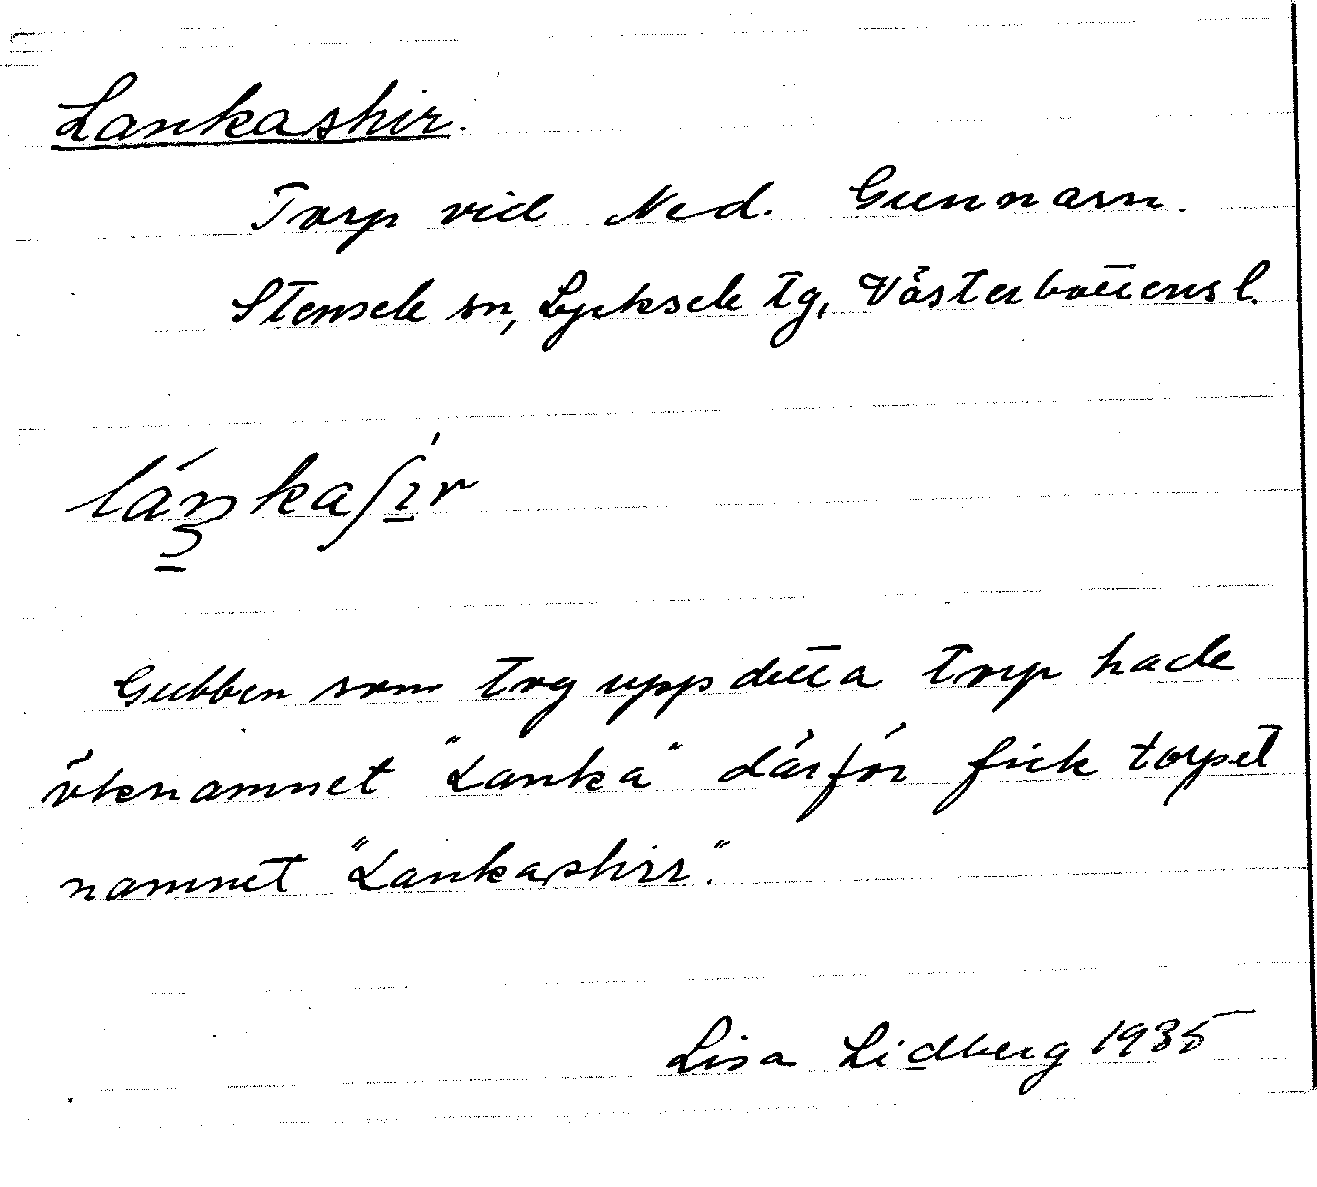 Lankashir.
Torp vid Ned. Gunnarn.
Stensele sn, Lycksele tg, Västerbottens l.
láŋkaʃır
Gubben som tog upp detta torp hade
öknamnet "Lanka" därför fick torpet
namnet "Lankashir".
Lisa Lidberg 1935